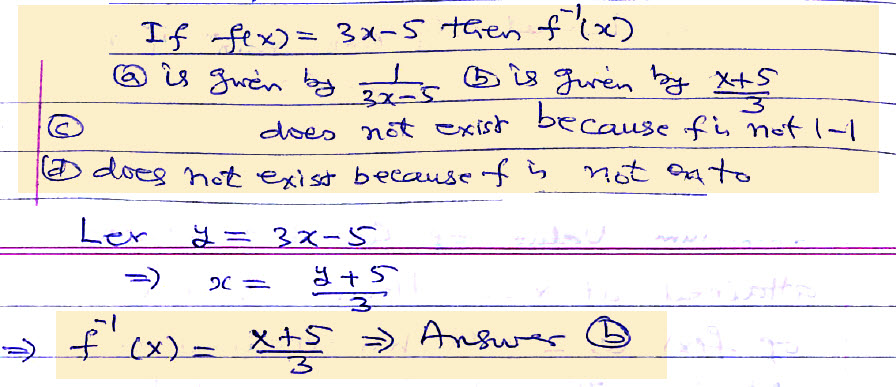 If f(x) = 3x-5 then f⁻¹(x)
(a) is given by 1/(3x-5) (b) is given by (x+5)/3
(c) does not exist because f is not 1-1
(d) does not exist because f is not onto
Let y = 3x-5
⇒ x = (y+5)/3
⇒ f⁻¹(x) = (x+5)/3 ⇒ Answer (b)